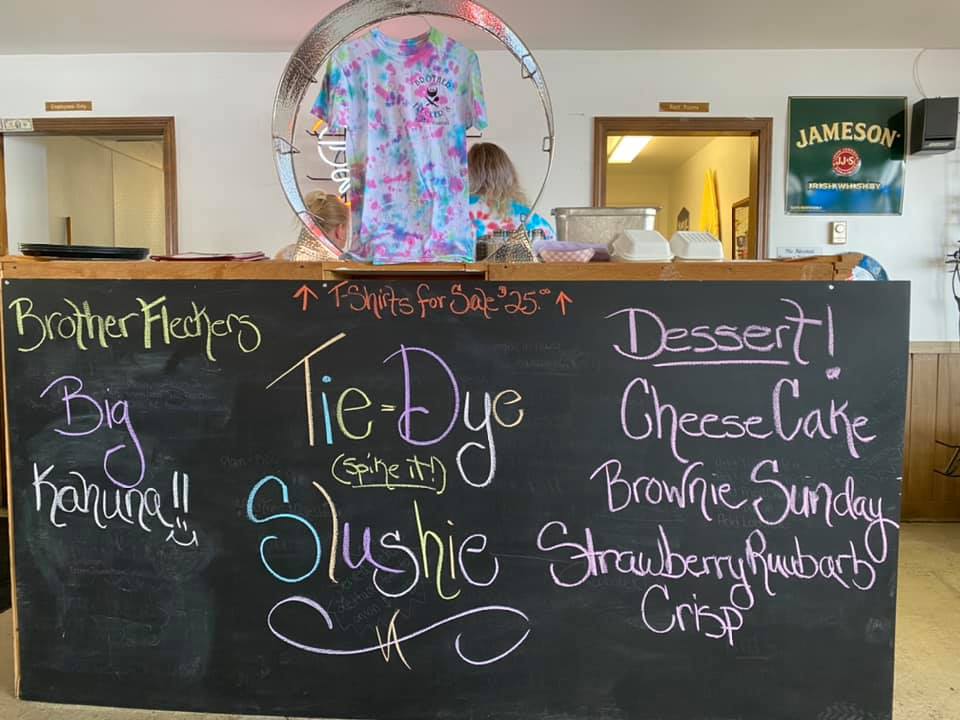 Employees Only
Rest Rooms
JAMESON
JJ&S
IRISH WHISKEY
↑ T-Shirts for Sale $25.00 ↑
Brother Fleckers
Big
Kahuna!!
Tie-Dye
(Spike it!)
Slushie
Dessert!
CheeseCake
Brownie Sunday
Strawberry Ruubarb
Crisp